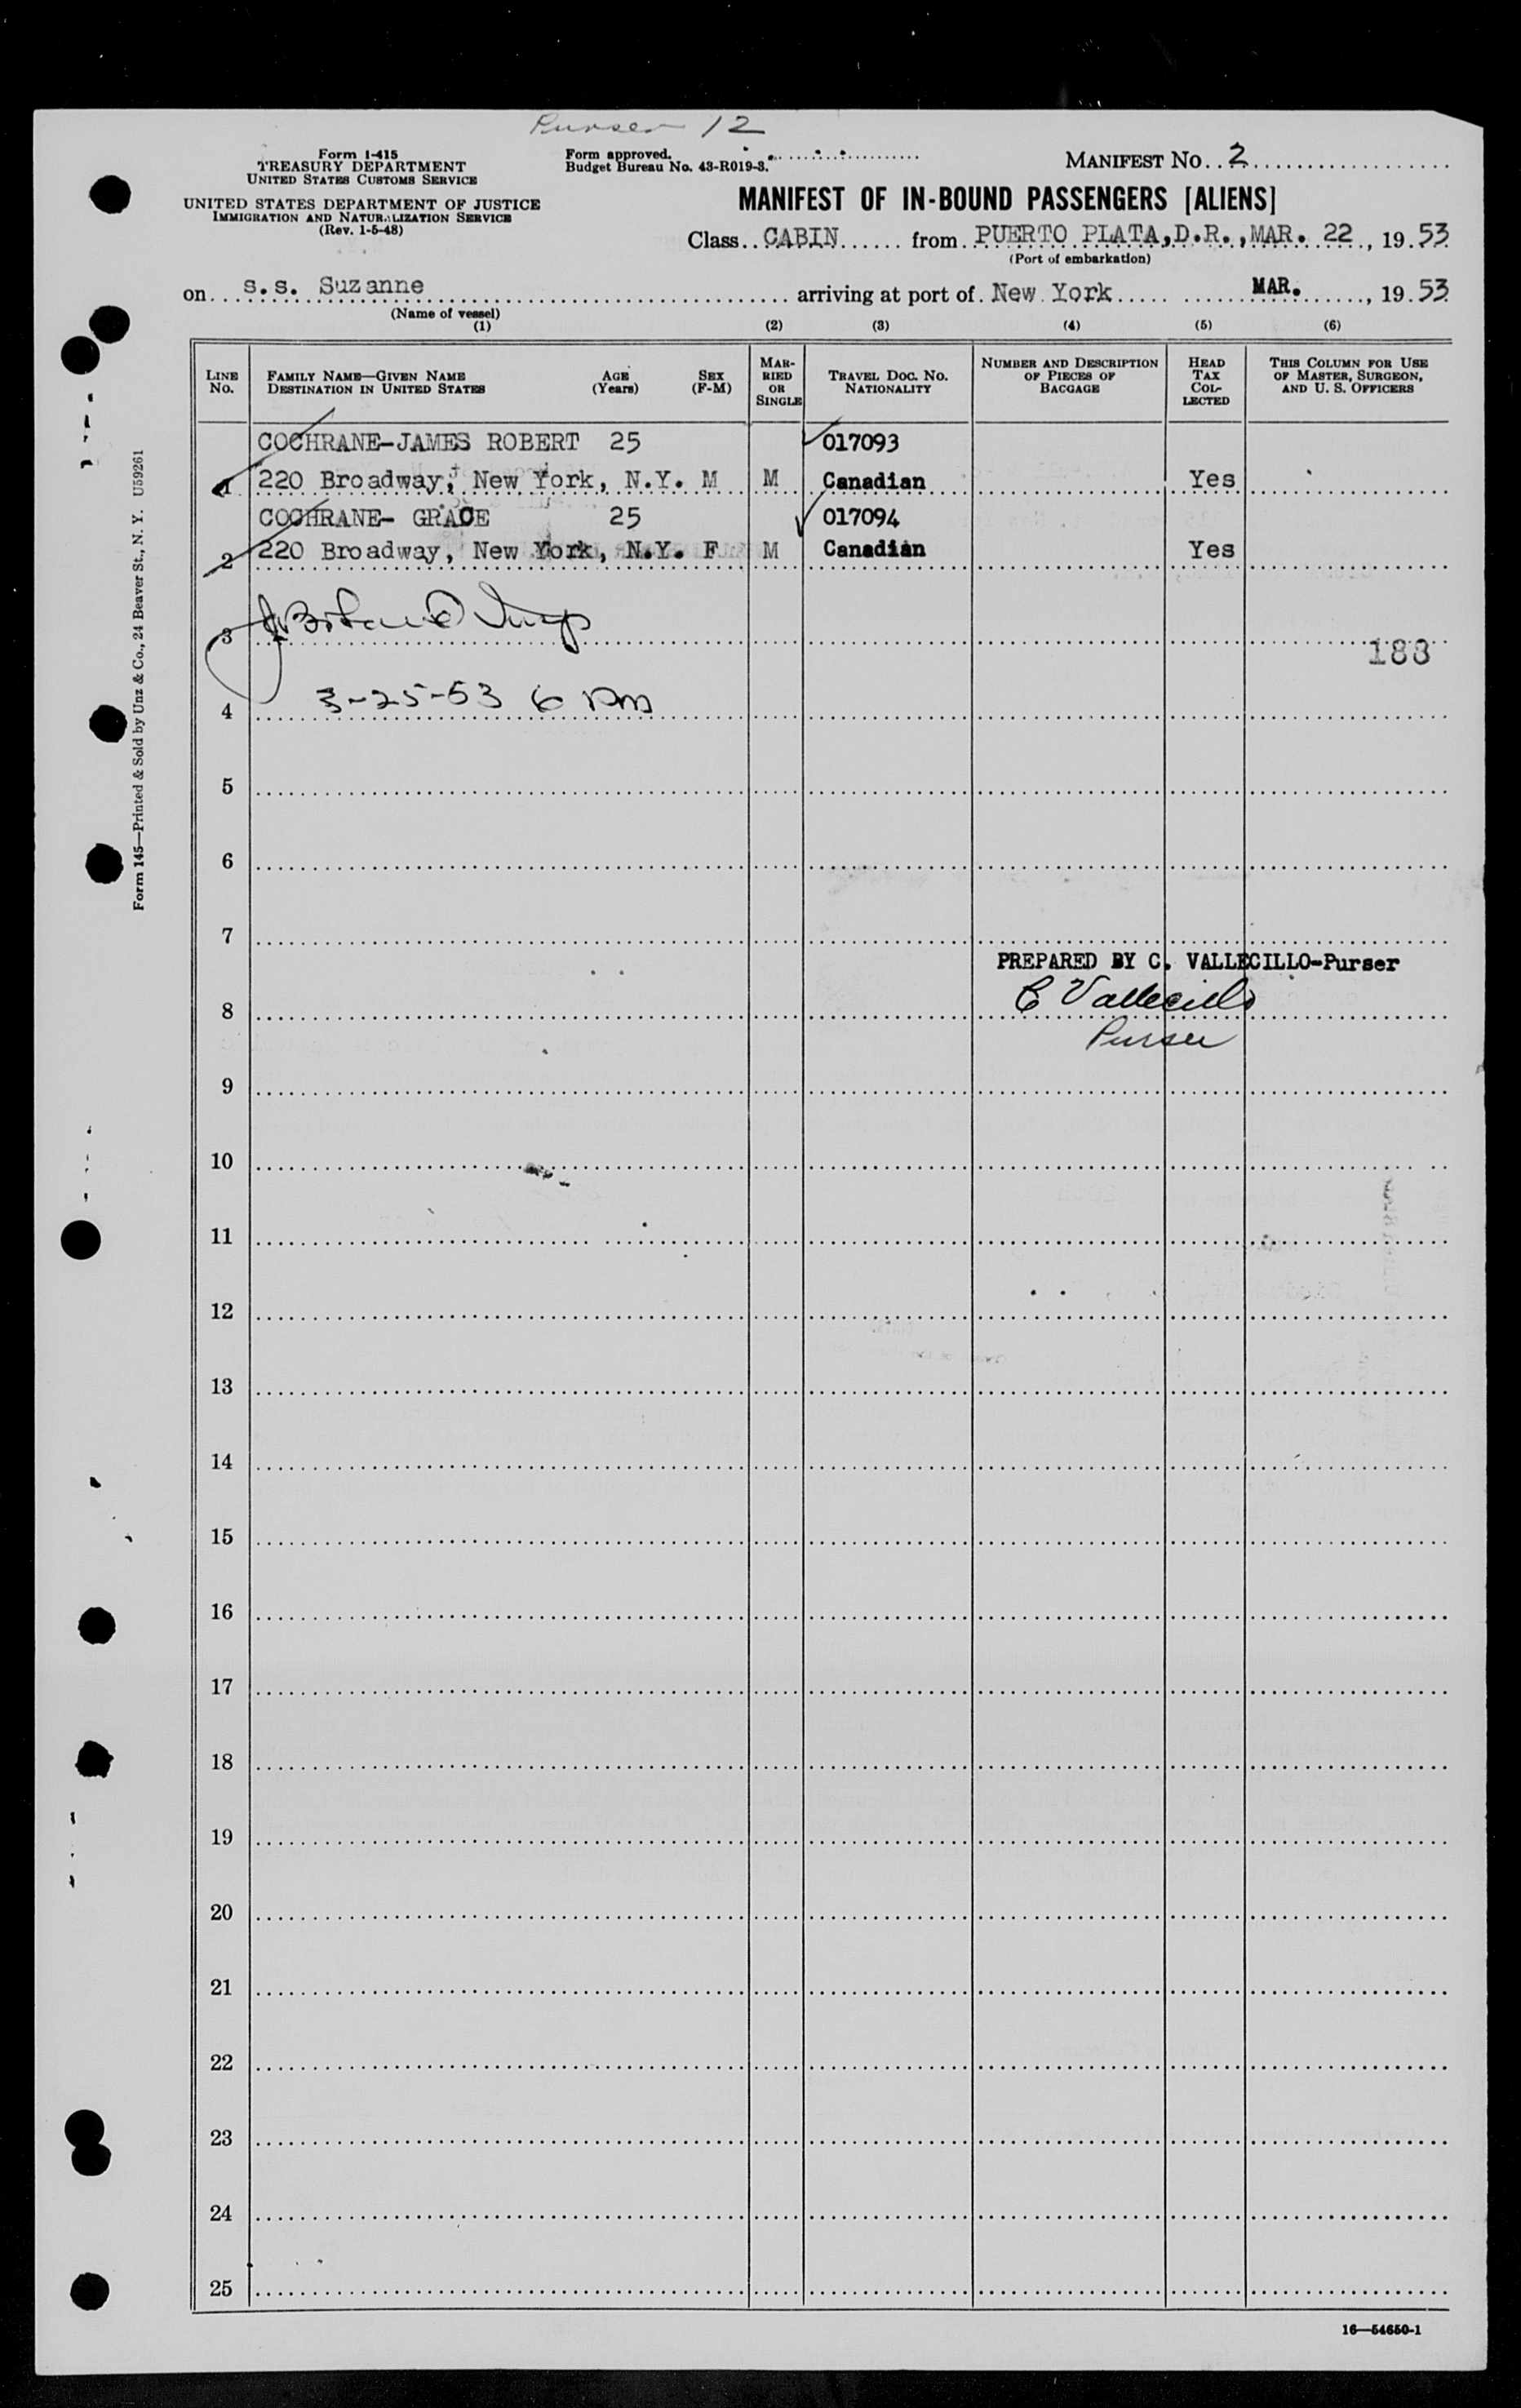 Purser 12
Form I-415
TREASURY DEPARTMENT
UNITED STATES CUSTOMS SERVICE
UNITED STATES DEPARTMENT OF JUSTICE
IMMIGRATION AND NATURALIZATION SERVICE
(Rev. 1-5-48)
Form approved.
Budget Bureau No. 43-R019-3.
MANIFEST NO. 2
MANIFEST OF IN-BOUND PASSENGERS [ALIENS]
Class CABIN from PUERTO PLATA, D.R., MAR. 22, 1953
(Port of embarkation)
on s.s. Suzanne arriving at port of New York MAR., 1953
(Name of vessel)
(1) (2) (3) (4) (5) (6)
LINE NO. FAMILY NAME—GIVEN NAME DESTINATION IN UNITED STATES AGE (Years) SEX (F-M) MARRIED OR SINGLE TRAVEL DOC. NO. NATIONALITY NUMBER AND DESCRIPTION OF PIECES OF BAGGAGE HEAD TAX COLLECTED THIS COLUMN FOR USE OF MASTER, SURGEON, AND U. S. OFFICERS
COCHRANE-JAMES ROBERT 25 017093
1 220 Broadway, New York, N.Y. M M Canadian Yes
COCHRANE- GRACE 25 017094
2 220 Broadway, New York, N.Y. F M Canadian Yes
3
188
4 3-25-53 6 PM
5
6
7
PREPARED BY C. VALLECILLO-Purser
8 C Vallecillo
Purser
9
10
11
12
13
14
15
16
17
18
19
20
21
22
23
24
25
16—54650-1
Form 145—Printed & Sold by Unz & Co., 24 Beaver St., N. Y. U59261